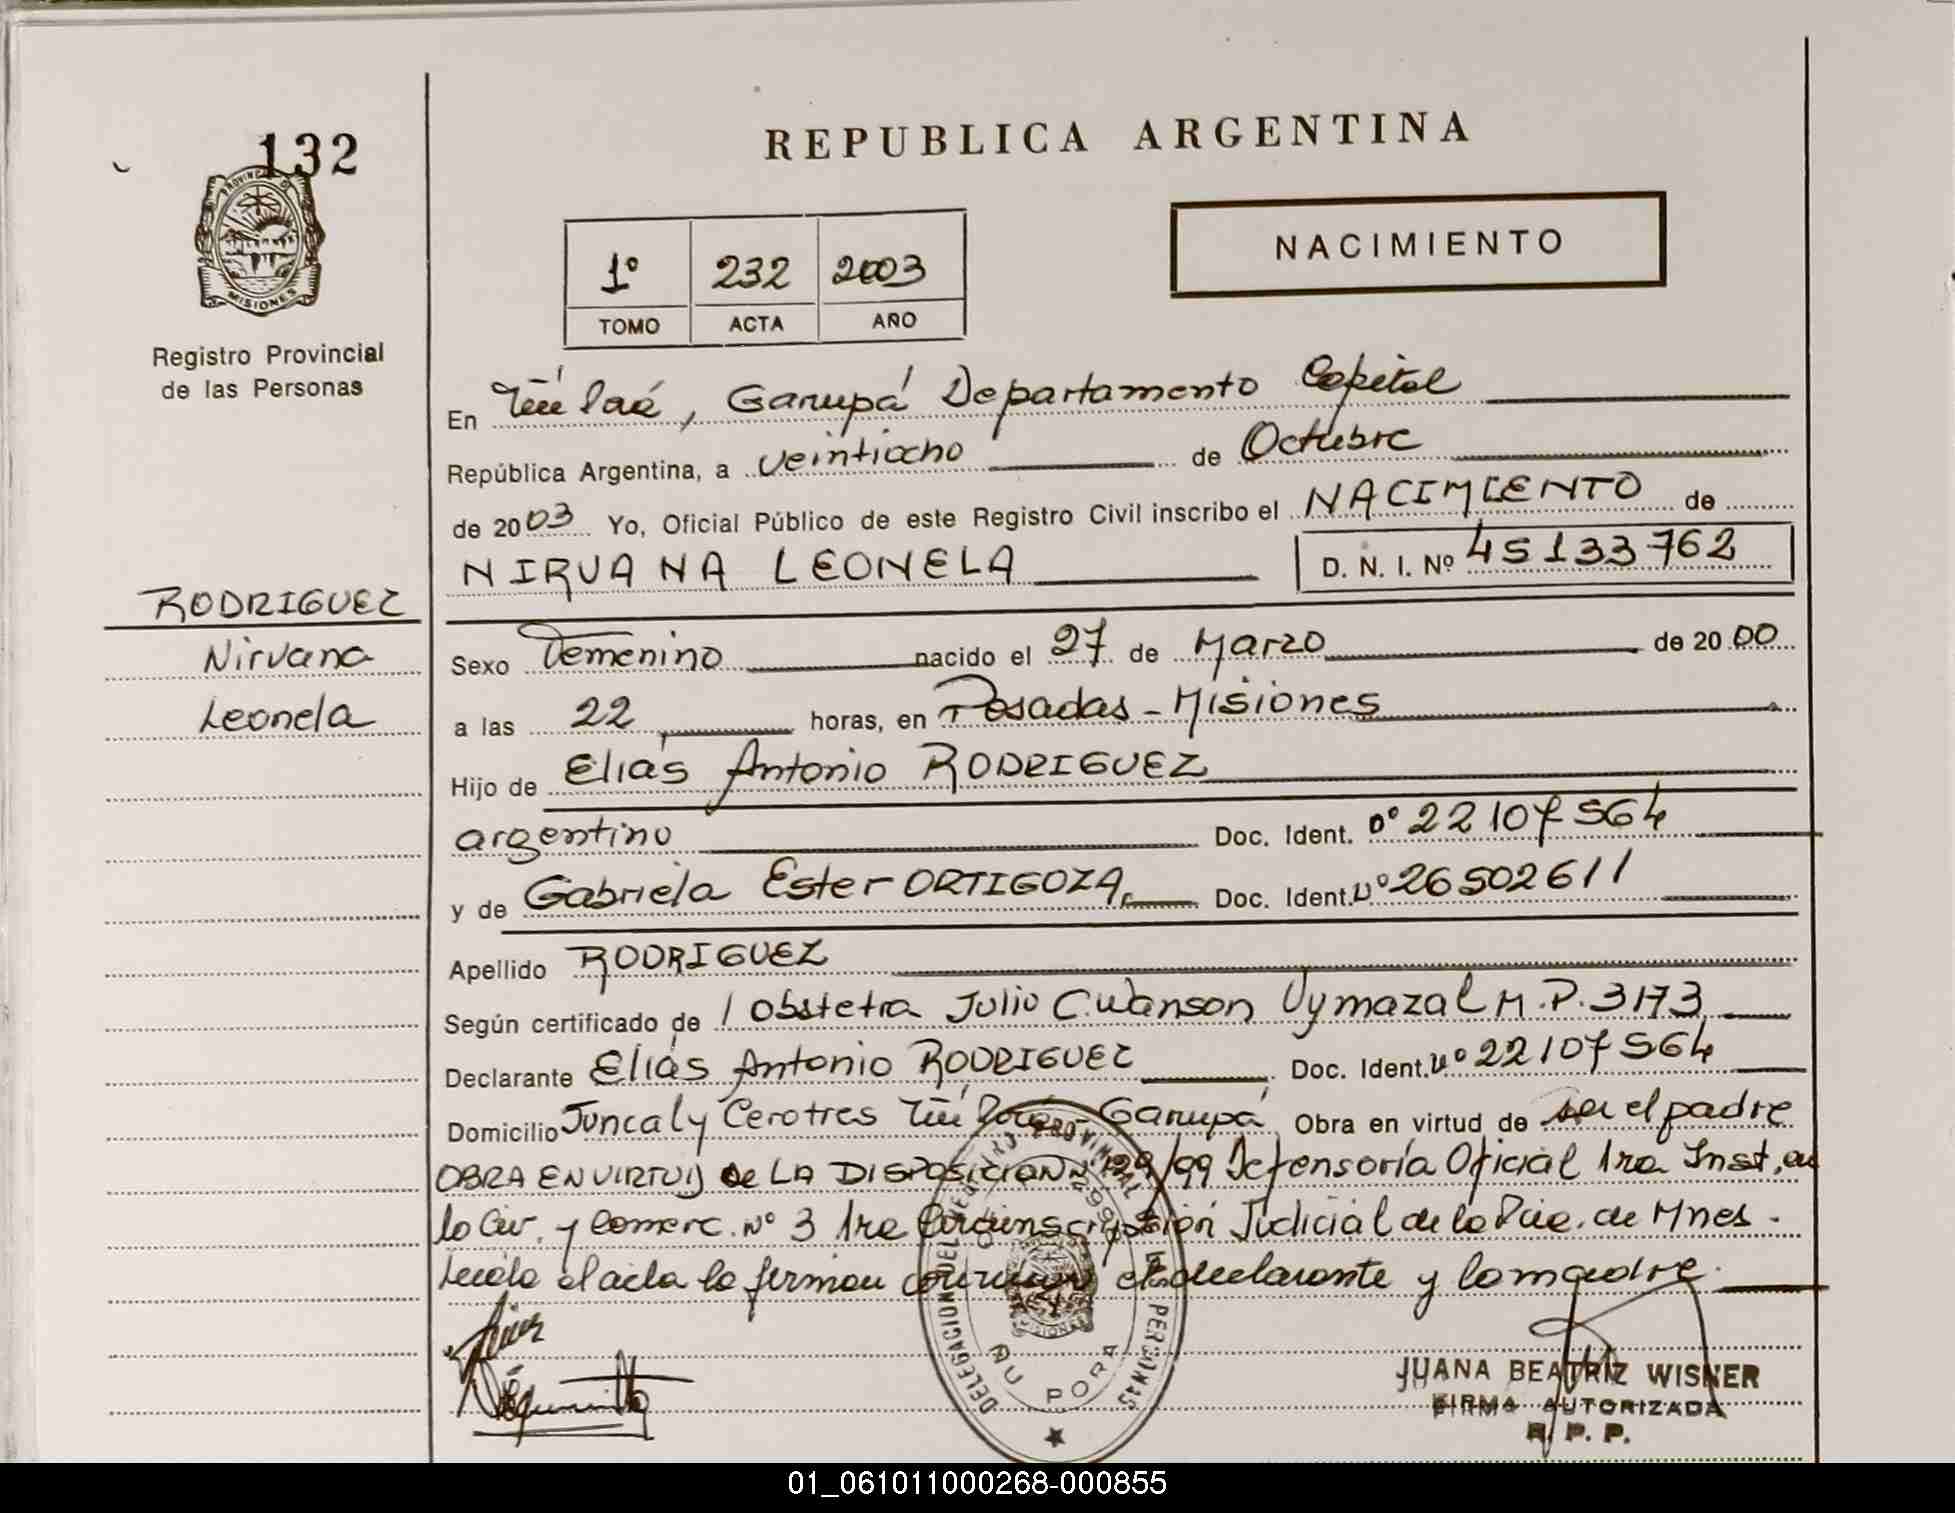 132
REPUBLICA ARGENTINA
PROVINCIA DE
MISIONES
Registro Provincial
de las Personas
1º 232 2003
TOMO ACTA AÑO
NACIMIENTO
En Ñu Porá, Garupá Departamento Capital
República Argentina, a veintiocho de Octubre
de 2003 Yo, Oficial Público de este Registro Civil inscribo el NACIMIENTO de
NIRVANA LEONELA D. N. I. Nº 45133762
RODRIGUEZ
Nirvana
Leonela
Sexo Femenino nacido el 27 de Marzo de 2000
a las 22 horas, en Posadas - Misiones
Hijo de Elías Antonio RODRIGUEZ
argentino Doc. Ident. nº 22107564
y de Gabriela Ester ORTIGOZA Doc. Ident. nº 26502611
Apellido RODRIGUEZ
Según certificado de / Obstetra Julio C. Wanson Vymazal M.P. 3173
Declarante Elías Antonio RODRIGUEZ Doc. Ident. nº 22107564
Domicilio Juncal y Cerotres Ñu Porá - Garupá Obra en virtud de ser el padre
OBRA EN VIRTUD de LA DISPOSICION Nº 129/99 Defensoría Oficial 1ra Inst. en
lo Civ. y Comerc. Nº 3 1ra Circunscripción Judicial de la Pcia. de Mnes.
Leída el acta la firman conmigo el declarante y la madre.
DELEGACION DEL REGISTRO PROVINCIAL DE LAS PERSONAS
MISIONES
ÑU PORA
JUANA BEATRIZ WISNER
FIRMA AUTORIZADA
R. P. P.
01_061011000268-000855